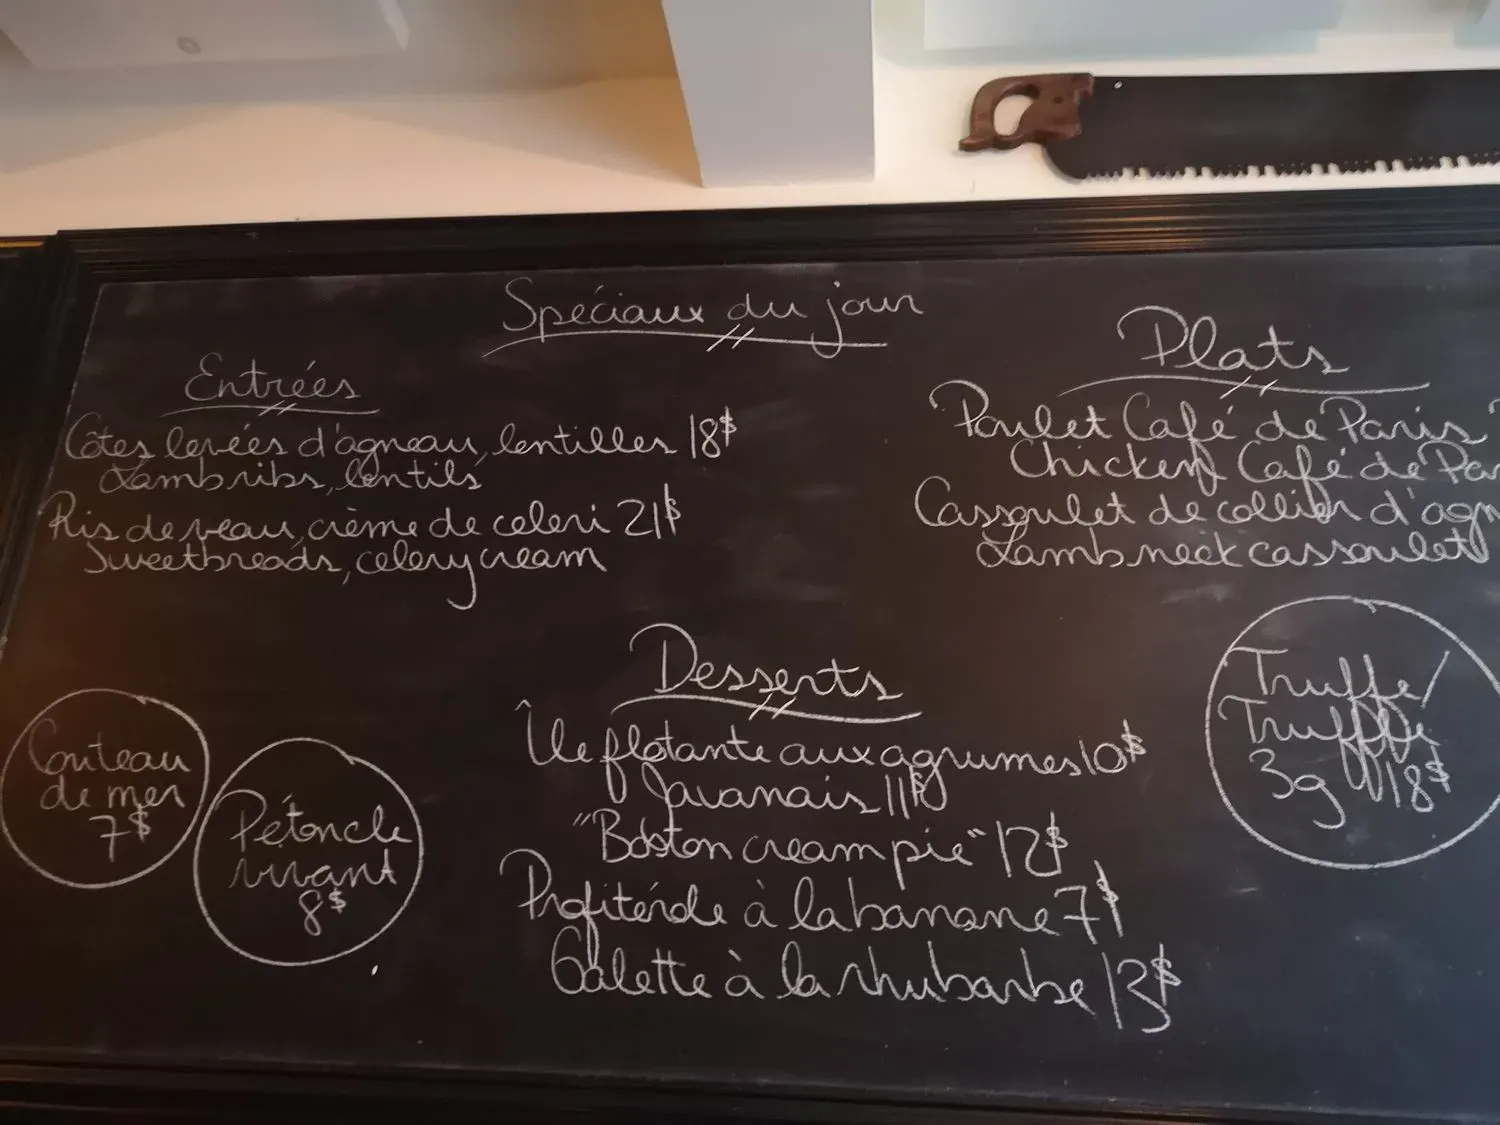 Spéciaux du jour
Entrées
Côtes levées d'agneau, lentilles 18$
Lamb ribs, lentils
Ris de veau, crème de celeri 21$
Sweetbreads, celery cream
Plats
Poulet Café de Paris
Chicken Café de Par
Cassoulet de collier d'agn
Lamb neck cassoulet
Desserts
Île flotante aux agrumes 10$
Javanais 11$
"Boston cream pie" 12$
Profiterole à la banane 7$
Galette à la rhubarbe 13$
Couteau
de mer
7$
Pétoncle
vivant
8$
Truffe/
Truffle
3g 18$